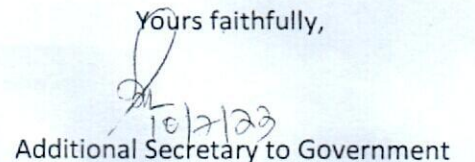 Yours faithfully,
10/7/23
Additional Secretary to Government